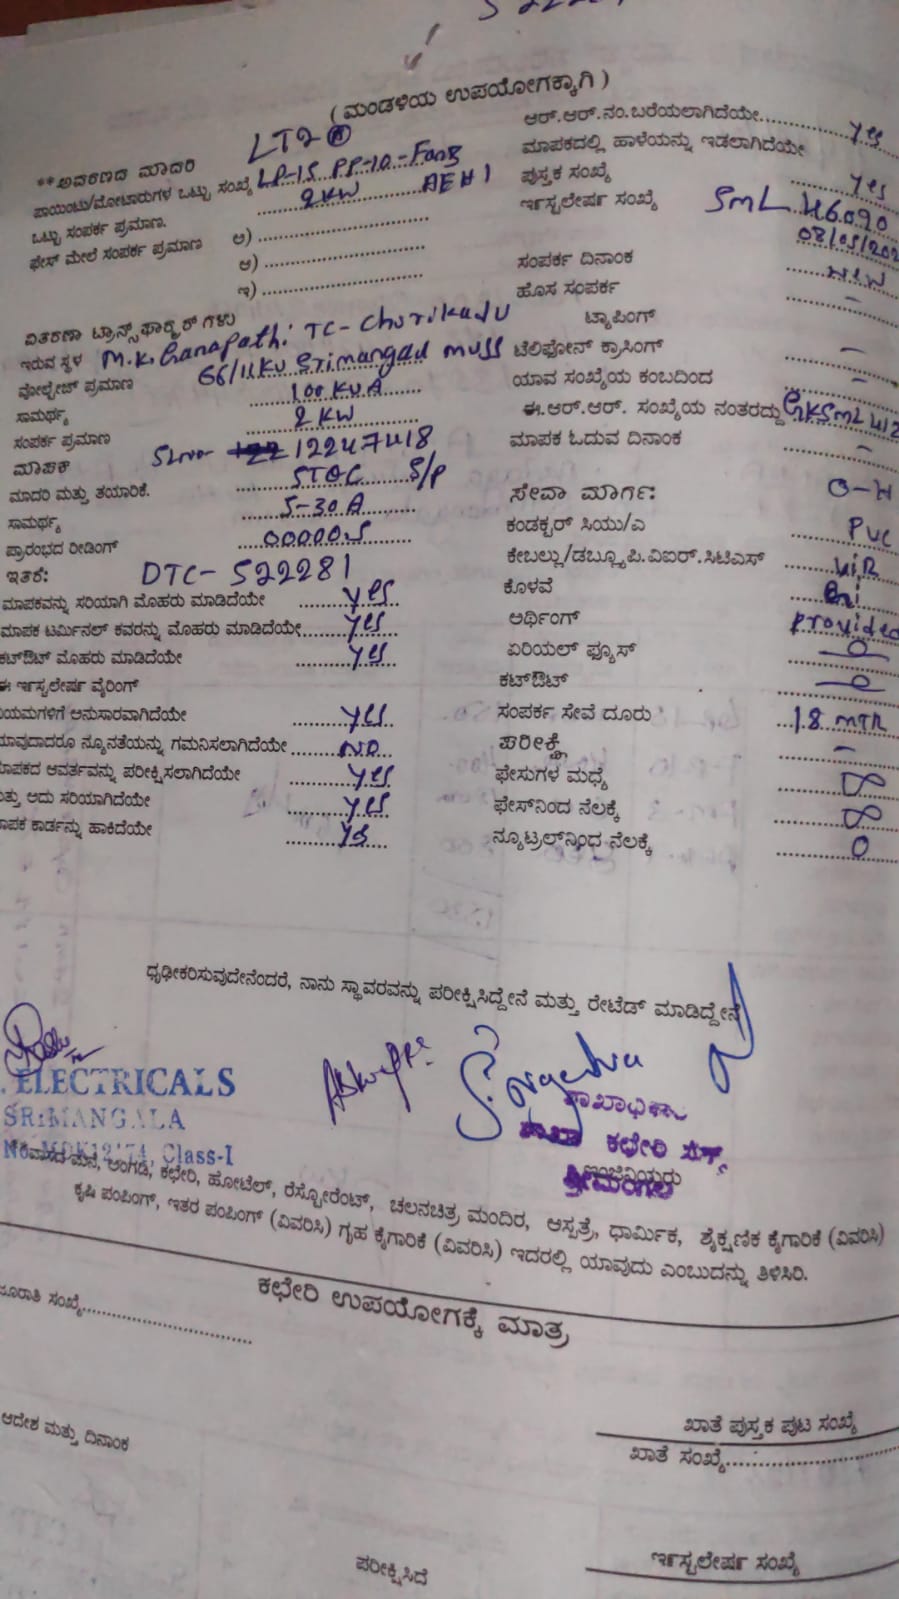 ( ಮಂಡಳಿಯ ಉಪಯೋಗಕ್ಕಾಗಿ )
**ಆವರಣದ ಮಾದರಿ LT2 (A)
ಪಾಯಿಂಟು/ಮೋಟಾರುಗಳ ಒಟ್ಟು ಸಂಖ್ಯೆ LP-15 PP-10-
ಒಟ್ಟು ಸಂಪರ್ಕ ಪ್ರಮಾಣ. 2KW AEH1
ಫೇಸ್ ಮೇಲೆ ಸಂಪರ್ಕ ಪ್ರಮಾಣ ಅ)
ಆ)
ಇ)
ವಿತರಣಾ ಟ್ರಾನ್ಸ್‌ಫಾರ್ಮರ್‌ಗಳು
ಇರುವ ಸ್ಥಳ M.K. Ganapathi TC- Churikadu
ವೋಲ್ಟೇಜ್ ಪ್ರಮಾಣ 66/11KV Srimangad MUSS
ಸಾಮರ್ಥ್ಯ 100 KVA
ಸಂಪರ್ಕ ಪ್ರಮಾಣ 2 KW
ಮಾಪಕ 12247418
ಮಾದರಿ ಮತ್ತು ತಯಾರಿಕೆ. S/P
ಸಾಮರ್ಥ್ಯ 5-30A
ಪ್ರಾರಂಭದ ರೀಡಿಂಗ್ 00000.5
ಇತರೆ: DTC- 522281
ಮಾಪಕವನ್ನು ಸರಿಯಾಗಿ ಮೊಹರು ಮಾಡಿದೆಯೇ yes
ಮಾಪಕ ಟರ್ಮಿನಲ್ ಕವರನ್ನು ಮೊಹರು ಮಾಡಿದೆಯೇ yes
ಕಟ್‌ಔಟ್ ಮೊಹರು ಮಾಡಿದೆಯೇ yes
ಈ ಇನ್‌ಸ್ಟಲೇಷನ್ ವೈರಿಂಗ್
ನಿಯಮಗಳಿಗೆ ಅನುಸಾರವಾಗಿದೆಯೇ yes
ಯಾವುದಾದರೂ ನ್ಯೂನತೆಯನ್ನು ಗಮನಿಸಲಾಗಿದೆಯೇ NO
ಮಾಪಕದ ಆವರ್ತವನ್ನು ಪರೀಕ್ಷಿಸಲಾಗಿದೆಯೇ yes
ಮತ್ತು ಅದು ಸರಿಯಾಗಿದೆಯೇ yes
ಮಾಪಕ ಕಾರ್ಡನ್ನು ಹಾಕಿದೆಯೇ yes
ಆರ್.ಆರ್.ನಂ.ಬರೆಯಲಾಗಿದೆಯೇ yes
ಮಾಪಕದಲ್ಲಿ ಹಾಳೆಯನ್ನು ಇಡಲಾಗಿದೆಯೇ yes
ಪುಸ್ತಕ ಸಂಖ್ಯೆ
ಇನ್‌ಸ್ಟಲೇಷನ್ ಸಂಖ್ಯೆ SML 46090
ಸಂಪರ್ಕ ದಿನಾಂಕ 08/05/202
ಹೊಸ ಸಂಪರ್ಕ NEW
ಟ್ಯಾಪಿಂಗ್ -
ಟೆಲಿಫೋನ್ ಕ್ರಾಸಿಂಗ್ -
ಯಾವ ಸಂಖ್ಯೆಯ ಕಂಬದಿಂದ -
ಈ.ಆರ್.ಆರ್. ಸಂಖ್ಯೆಯ ನಂತರದ್ದು
ಮಾಪಕ ಓದುವ ದಿನಾಂಕ -
ಸೇವಾ ಮಾರ್ಗ: O-H
ಕಂಡಕ್ಟರ್ ಸಿಯು/ಎ PVC
ಕೇಬಲ್ಲು/ಡಬ್ಲ್ಯೂ.ಪಿ.ವಿಐಆರ್.ಸಿಟಿಎಸ್ VIR
ಕೊಳವೆ GI
ಅರ್ಥಿಂಗ್ provided
ಏರಿಯಲ್ ಫ್ಯೂಸ್
ಕಟ್‌ಔಟ್
ಸಂಪರ್ಕ ಸೇವೆ ದೂರು 18 MTR
ಪರೀಕ್ಷೆ -
ಫೇಸುಗಳ ಮಧ್ಯೆ ∞
ಫೇಸ್‌ನಿಂದ ನೆಲಕ್ಕೆ ∞
ನ್ಯೂಟ್ರಲ್‌ನಿಂದ ನೆಲಕ್ಕೆ 0
ಧೃಢೀಕರಿಸುವುದೇನೆಂದರೆ, ನಾನು ಸ್ಥಾವರವನ್ನು ಪರೀಕ್ಷಿಸಿದ್ದೇನೆ ಮತ್ತು ರೇಟೆಡ್ ಮಾಡಿದ್ದೇನೆ
ELECTRICALS
SRIMANGALA
Class-I
ಶಾಖಾಧಿಕಾರಿ
ಶಾಖಾ ಕಛೇರಿ
ಇಂಜಿನಿಯರು
ಶ್ರೀಮಂಗಲ
ಮನೆ, ಅಂಗಡಿ, ಕಛೇರಿ, ಹೋಟೆಲ್, ರೆಸ್ಟೋರೆಂಟ್, ಚಲನಚಿತ್ರ ಮಂದಿರ, ಆಸ್ಪತ್ರೆ, ಧಾರ್ಮಿಕ, ಶೈಕ್ಷಣಿಕ ಕೈಗಾರಿಕೆ (ವಿವರಿಸಿ)
ಕೃಷಿ ಪಂಪಿಂಗ್, ಇತರ ಪಂಪಿಂಗ್ (ವಿವರಿಸಿ) ಗೃಹ ಕೈಗಾರಿಕೆ (ವಿವರಿಸಿ) ಇದರಲ್ಲಿ ಯಾವುದು ಎಂಬುದನ್ನು ತಿಳಿಸಿರಿ.
ಕಛೇರಿ ಉಪಯೋಗಕ್ಕೆ ಮಾತ್ರ
ಜೂರಾತಿ ಸಂಖ್ಯೆ
ಖಾತೆ ಪುಸ್ತಕ ಪುಟ ಸಂಖ್ಯೆ
ಆದೇಶ ಮತ್ತು ದಿನಾಂಕ
ಖಾತೆ ಸಂಖ್ಯೆ
ಪರೀಕ್ಷಿಸಿದೆ
ಇನ್‌ಸ್ಟಲೇಷನ್ ಸಂಖ್ಯೆ